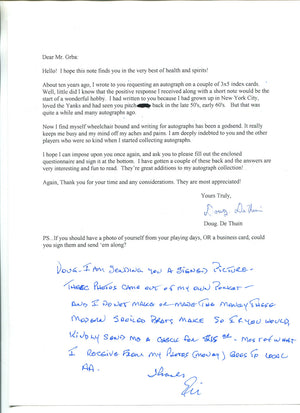 Dear Mr. Grba:
Hello! I hope this note finds you in the very best of health and spirits!
About ten years ago, I wrote to you requesting an autograph on a couple of 3x5 index cards.
Well, little did I know that the positive response I received along with a short note would be the
start of a wonderful hobby. I had written to you because I had grown up in New York City,
loved the Yanks and had seen you pitch back in the late 50's, early 60's. But that was
quite a while and many autographs ago.
Now I find myself wheelchair bound and writing for autographs has been a godsend. It really
keeps me busy and my mind off my aches and pains. I am deeply indebted to you and the other
players who were so kind when I started collecting autographs.
I hope I can impose upon you once again, and ask you to please fill out the enclosed
questionnaire and sign it at the bottom. I have gotten a couple of these back and the answers are
very interesting and fun to read. They're great additions to my autograph collection!
Again, Thank you for your time and any considerations. They are most appreciated!
Yours Truly,
Doug De Thuin
Doug. De Thuin
PS. If you should have a photo of yourself from your playing days, OR a business card, could
you sign them and send 'em along?
Doug - I am sending you a signed picture -
These photos came out of my own pocket -
and I do not make or made the money these
modern spoiled brats make so if you would,
kindly send me a check for this $15 00. Most of what
I receive from my photos (money) goes to local
AA.
Thanks
Eli